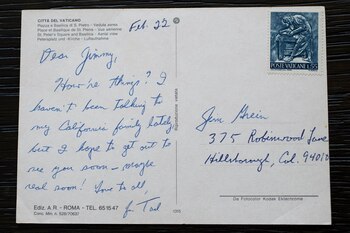 CITTÀ DEL VATICANO
Piazza e Basilica di S. Pietro - Veduta aerea
Place et Basilique de St. Pierre - Vue aérienne
St. Peter's Square and Basilica - Aerial view
Petersplatz und -Kirche - Luftaufnahme
Feb. 22
Dear Jimmy,
How're things? I
haven't been talking to
my California family lately
but I hope to get out to
see you soon - maybe
real soon! Love to all,
Ediz. A.R. - ROMA - TEL. 65 15 47
Riproduzione vietata
POSTE VATICANE L.55
Jim
375 Robinwood Lane
Hillsborough, Cal. 94010
Da Fotocolor Kodak Ektachrome